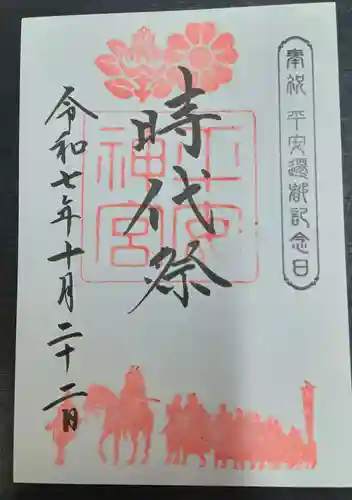 奉祝 平安遷都記念日
平安神宮
時代祭
令和七年十月二十二日